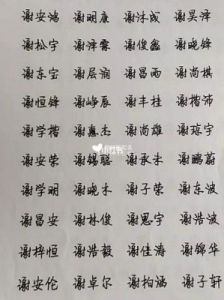 谢安鸿 谢明康 谢沐成 谢昊泽
谢松宇 谢泽霖 谢俊鑫 谢晓锋
谢东宝 谢层澜 谢昌雨 谢尚棋
谢恒锋 谢峥辰 谢丰桂 谢楷沛
谢学楷 谢嘉杰 谢尚雄 谢琼宇
谢安荣 谢锡聪 谢承禾 谢鹏蔚
谢学明 谢晓丰 谢子荣 谢东波
谢昌安 谢林俊 谢思宇 谢浩波
谢梓恒 谢浩毅 谢佳海 谢锦华
谢安伦 谢卓尔 谢柏涵 谢子轩